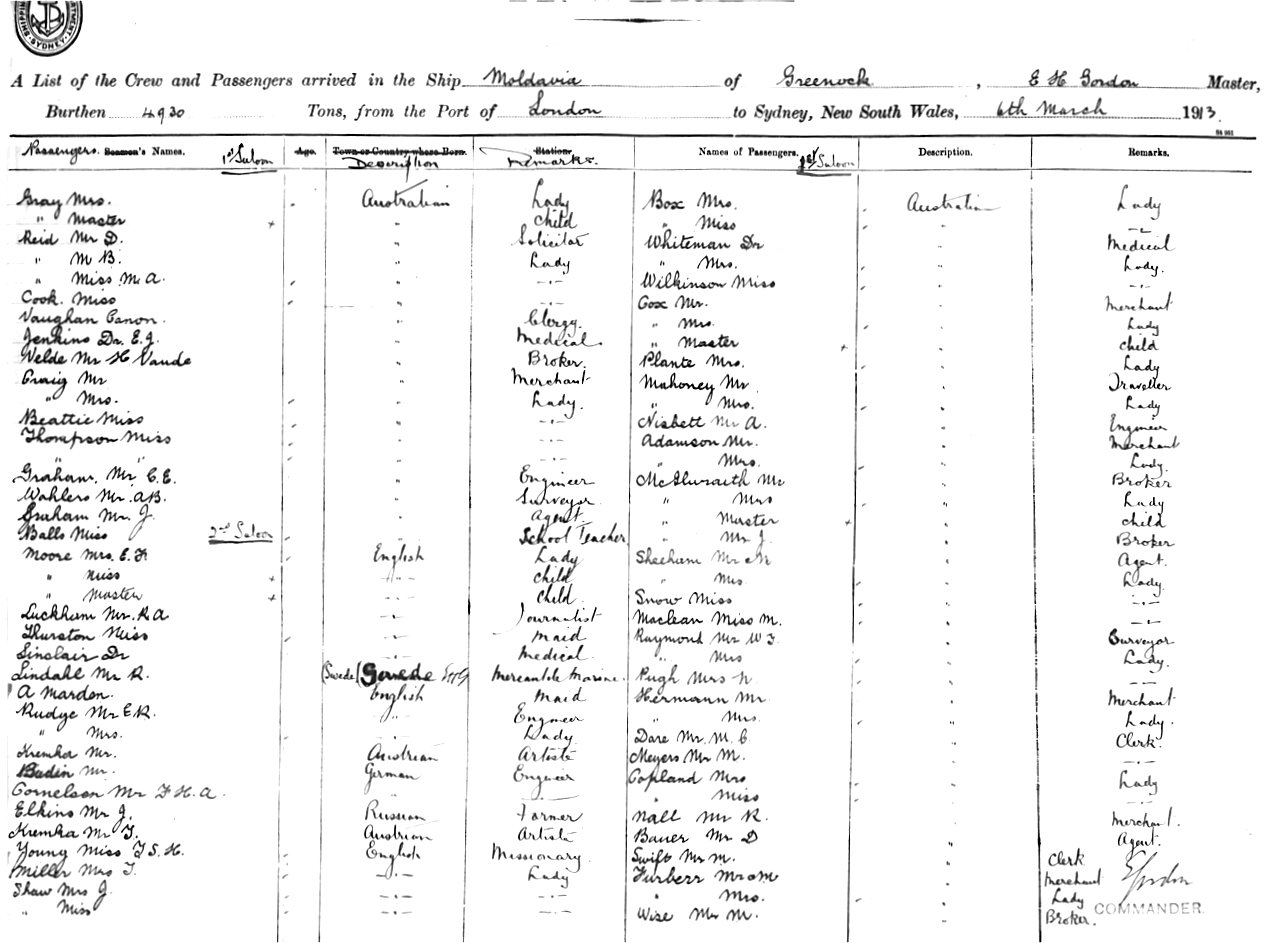 SHIPPING DEPARTMENT SYDNEY
A List of the Crew and Passengers arrived in the Ship Moldavia of Greenock, E H Gordon Master,
Burthen 4930 Tons, from the Port of London to Sydney, New South Wales, 6th March 1913.
84 961
Passengers. Seamen's Names. 1st Saloon Age. Town or Country whose Born. Description Station. Remarks. Names of Passengers. 1st Saloon Description. Remarks.
Gray Mrs. Australian Lady Box Mrs. Australian Lady
" Master + " Child " Miss " -"-
Reid Mr D. " Solicitor Whiteman Dr " Medical
" M B. " Lady " Mrs. " Lady.
" Miss M. A. " -"- Wilkinson Miss " -"-
Cook. Miss " -"- Cox Mr. " Merchant
Vaughan Canon. " Clergy. " Mrs. " Lady
Jenkins Dr. E. J. " Medical " Master + " Child
Welde Mr H Vande " Broker. Plante Mrs. " Lady
Craig Mr " Merchant Mahoney Mr " Traveller
" Mrs. " Lady. " Mrs. " Lady
Beattie Miss " -"- Nisbett Mr A. " Engineer
Thompson Miss " -"- Adamson Mr. " Merchant
" " " -"- " Mrs. " Lady.
Graham, Mr. C. E. " Engineer McIlwraith Mr " Broker
Wahlers Mr. A.B. " Surveyor " Mrs " Lady
Graham Mr. J. " Agent " Master + " Child
Balls Miss 2nd Saloon " School Teacher " Mr J. " Broker
Moore Mrs. E. F. English Lady Sheehan Mr " Agent.
" Miss + -"- Child " Mrs " Lady.
" Master + -"- Child. Snow Miss " -"-
Luckham Mr. R A -"- Journalist Maclean Miss M. " -"-
Thurston Miss -"- Maid Raymond Mr W J. " Surveyor
Sinclair Dr -"- Medical " Mrs " Lady.
Lindahl Mr R. (Swede) EHG Mercantile Marine. Pugh Mrs N. " -"-
A Marden. English Maid Hermann Mr. " Merchant
Rudge Mr E.R. -"- Engineer " Mrs. " Lady.
" Mrs. -"- Lady Dare Mr. M. C. " Clerk.
Kremka Mr. Austrian Artiste Meyers Mr M. " -"-
Badin Mr. German Engineer Copland Mrs " Lady
Cornelson Mr F. H. A. " -"- " Miss " -"-
Elkins Mr J. Russian Farmer Nall Mr R. " Merchant.
Kremka Mr J. Austrian Artiste Bauer Mr D " Agent.
Young Miss J. S. H. English Missionary. Swift Mr M. " Clerk
Miller Mrs J. -"- Lady Furberr Mr M " Merchant E Gordon
Shaw Mrs J. -"- -"- " Mrs. " Lady COMMANDER.
" Miss -"- -"- Wise Mr M. " Broker.